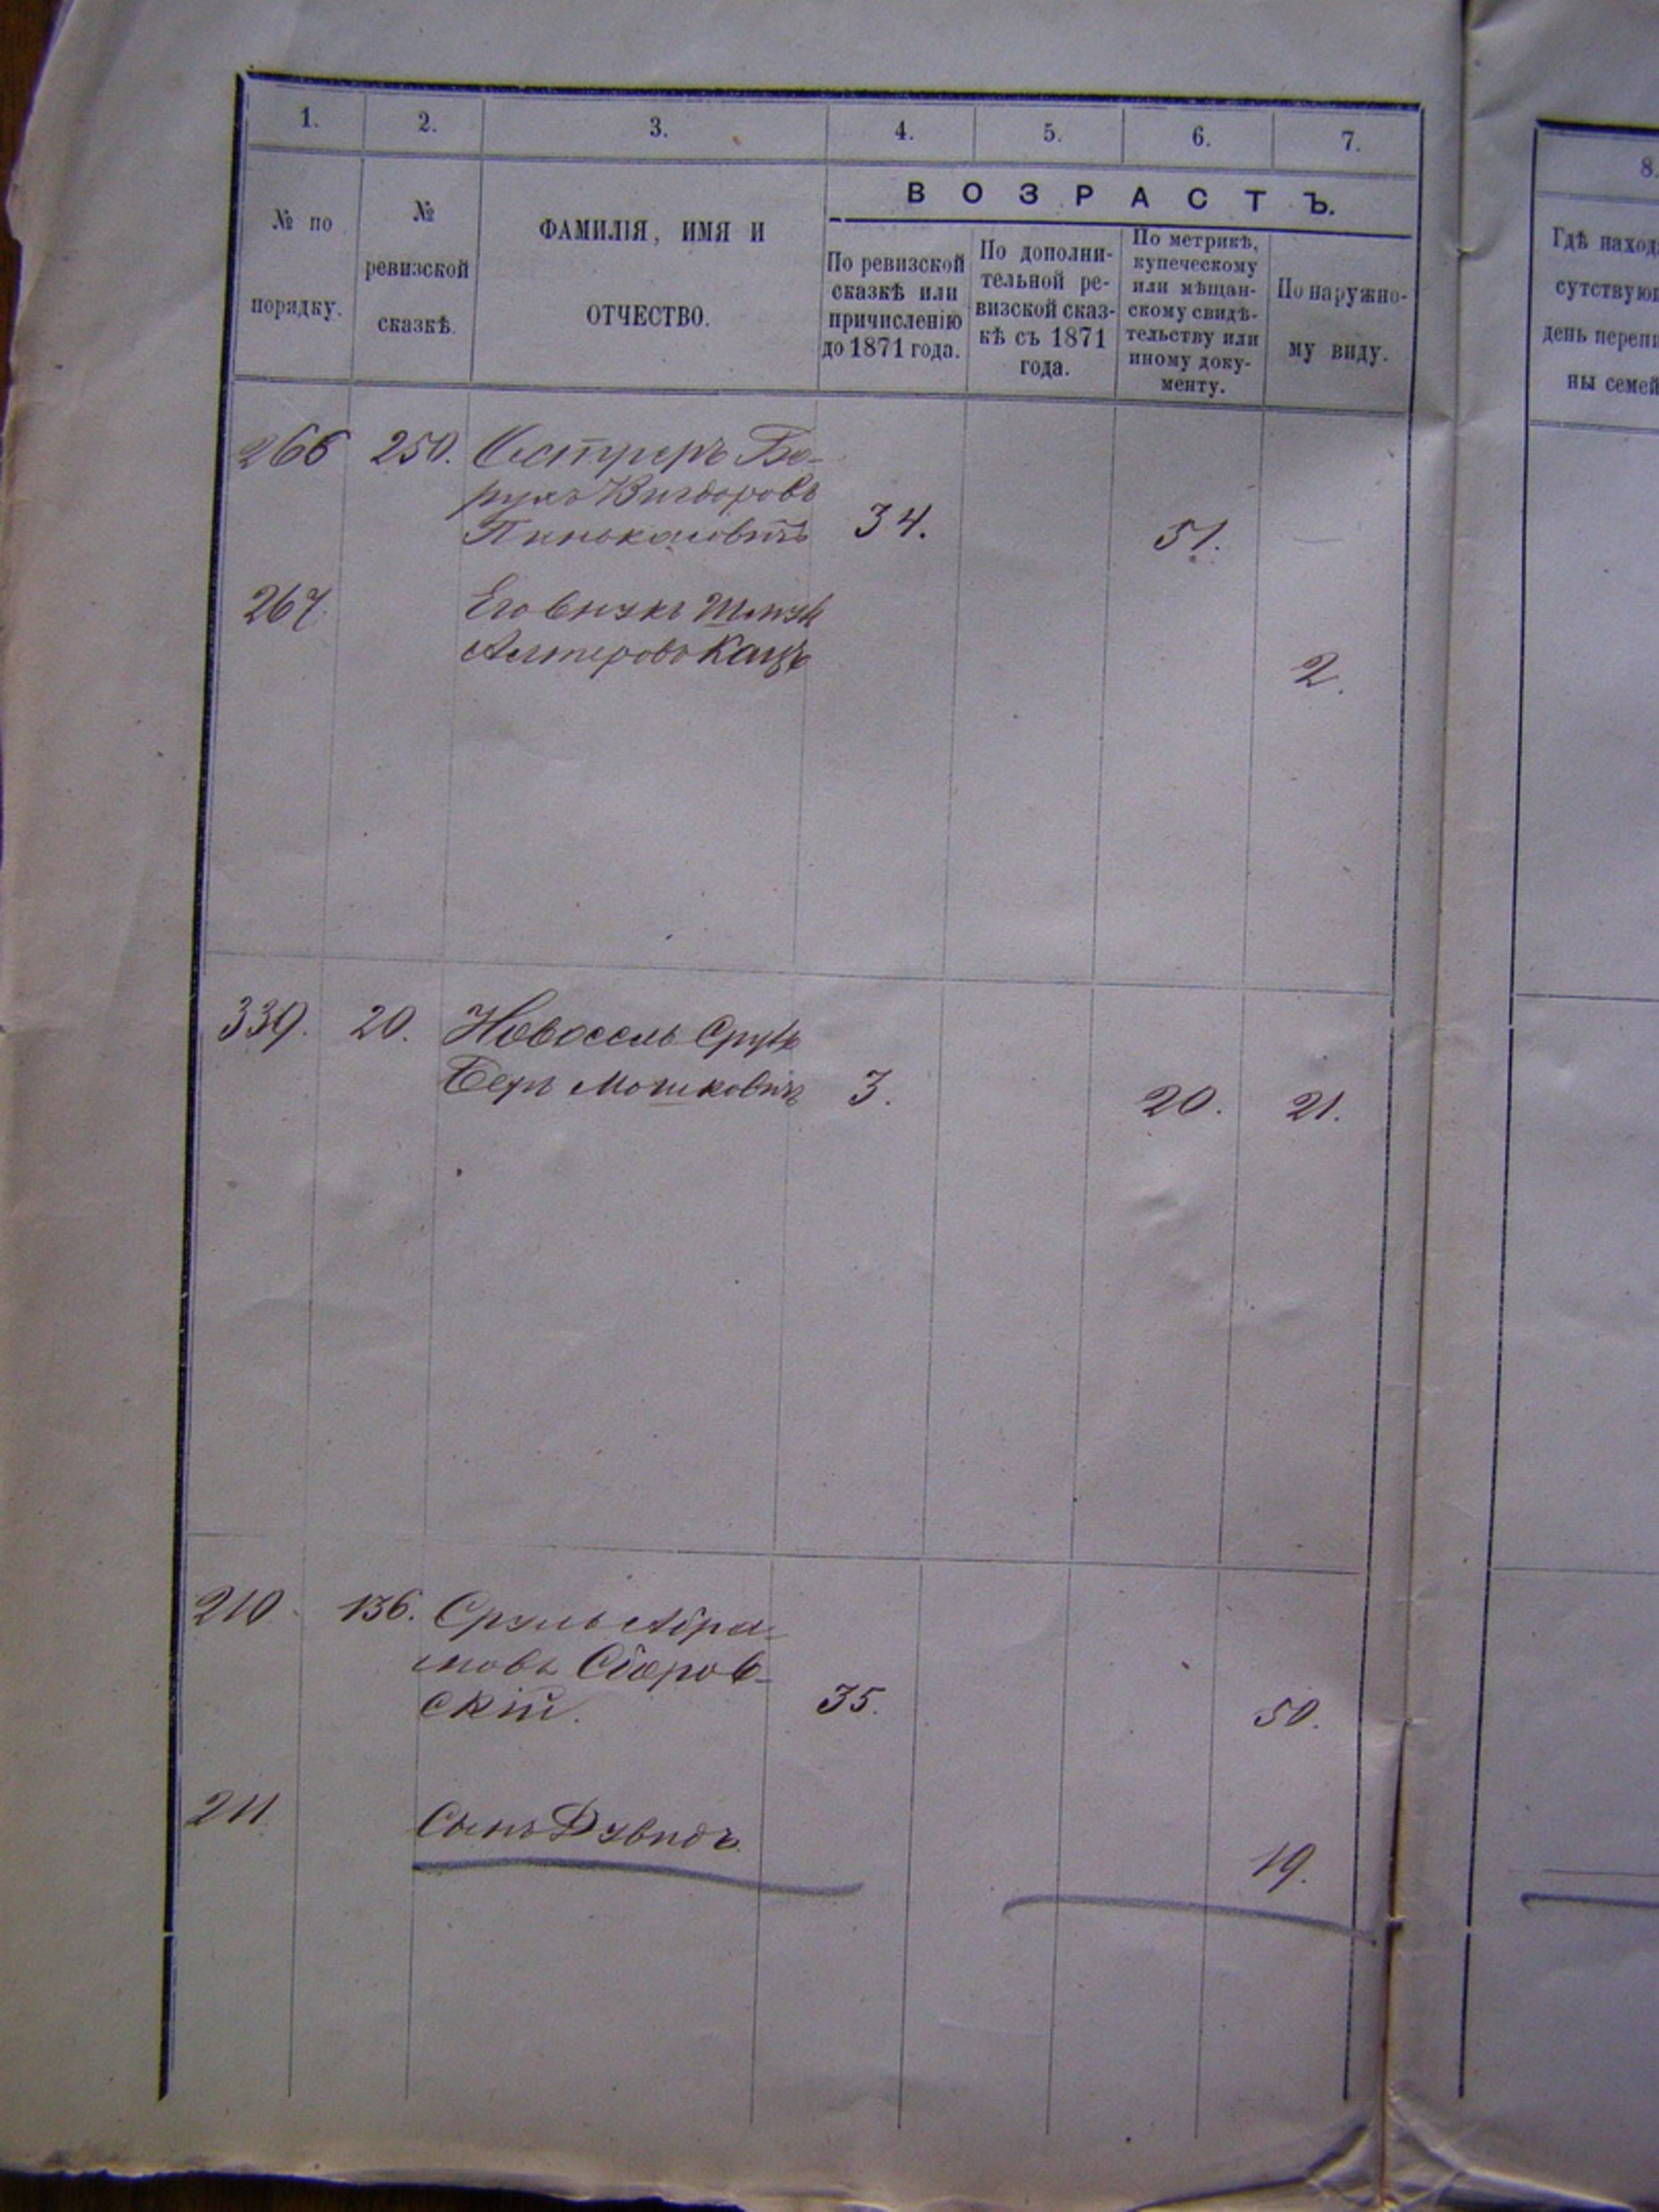 1. 2. 3. 4. 5. 6. 7.
№ по порядку.
№ ревизской сказкѣ.
ФАМИЛІЯ, ИМЯ И
ОТЧЕСТВО.
ВОЗРАСТЪ.
По ревизской
сказкѣ или
причисленію
до 1871 года.
По дополни-
тельной ре-
визской сказ-
кѣ съ 1871
года.
По метрикѣ,
купеческому
или мѣщан-
скому свидѣ-
тельству или
иному доку-
менту.
По наружно-
му виду.
8.
Гдѣ наход
сутствую
день переп
ны семей
266 250.
Вигдоровъ
34. 51.
267. Его внукъ
Алтеровъ Кацъ
2.
339. 20. Новосель Сруль
Беръ Мошковичъ 3. 20. 21.
210 136. Сруль Абра-
мовъ
скій. 35. 50.
211 Сынъ Дувидъ
19.